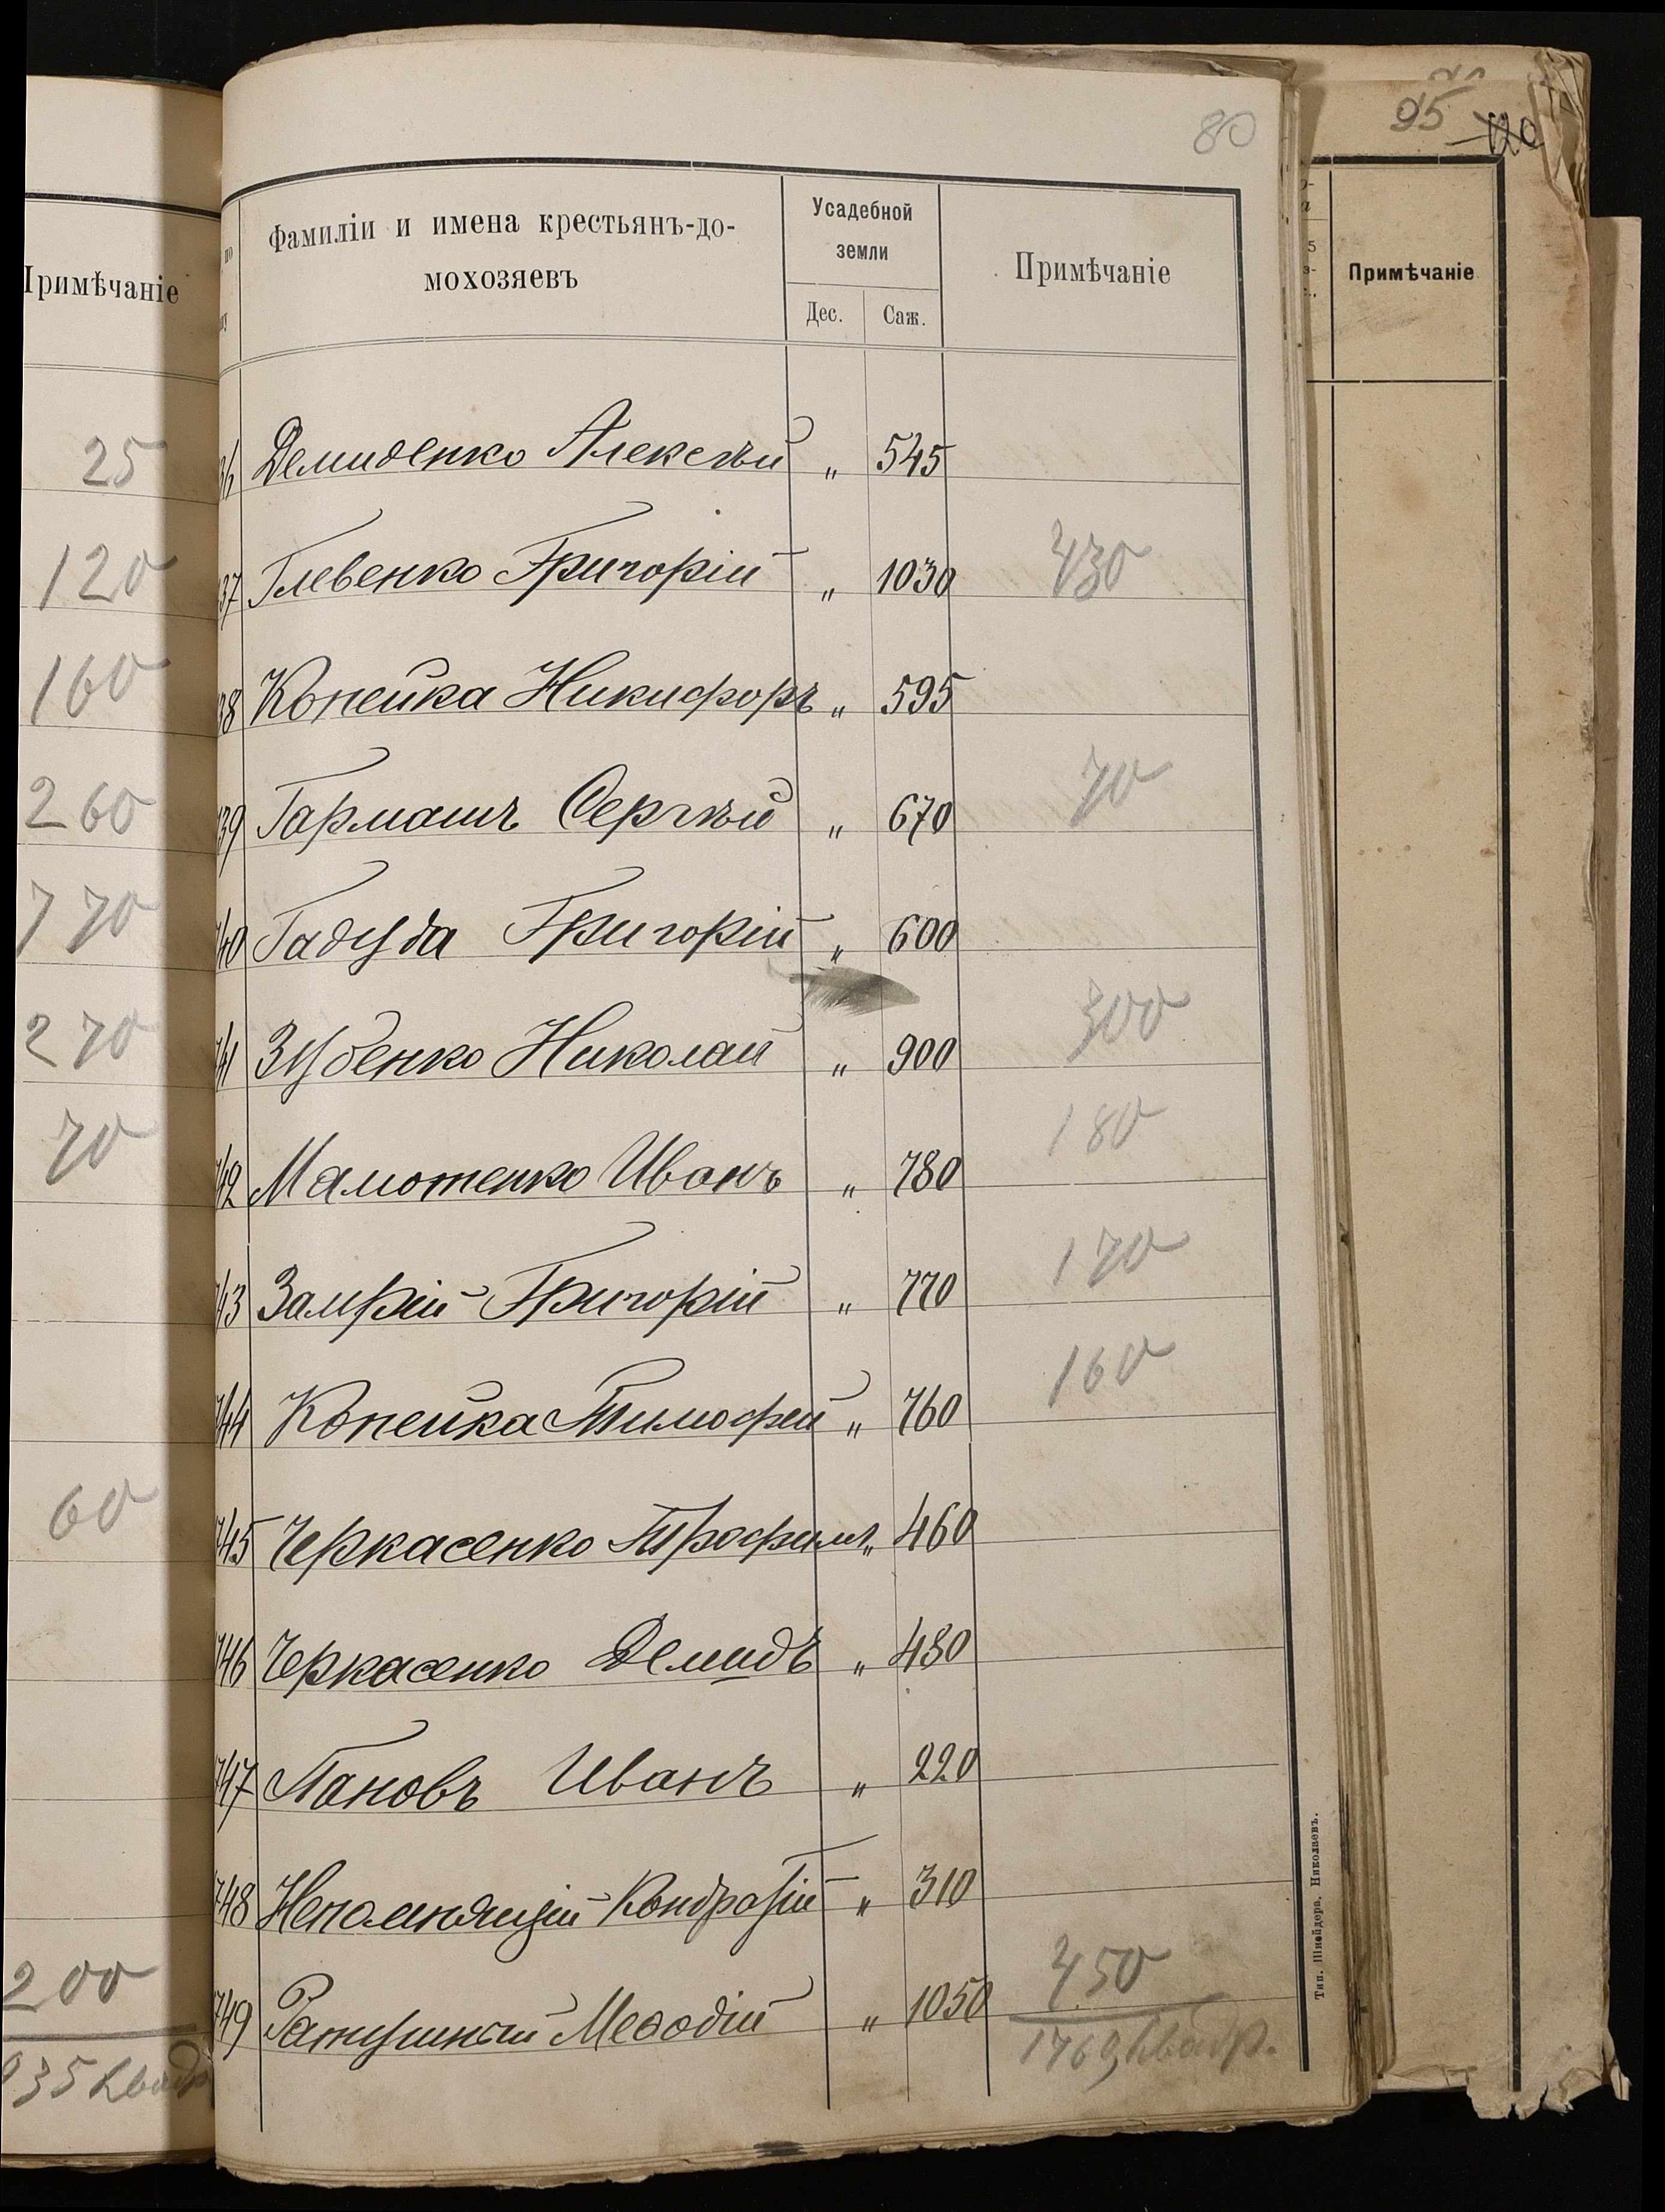 80
95
Примѣчаніе
25
120
160
260
770
270
70
60
200
по
Фамиліи и имена крестьянъ-до-
мохозяевъ
Усадебной
земли
Дес. Саж.
Примѣчаніе
36 Демиденко Алексѣй " 545
37 Глевенко Григорій " 1030 430
38 Копейка Никифоръ " 595
39 Гармашъ Сергѣй " 670 70
740 Гадуда Григорій " 600
741 Зубенко Николай " 900 300
742 Мамотенко Иванъ " 780 180
743 Замрій Григорій " 770 170
744 Копейка Тимофей " 760 160
745 Черкасенко Трофимъ " 460
746 Черкасенко Демидъ " 480
747 Пановъ Иванъ " 220
748 Непомнящій Кондратій " 310
749 Ратушный Меѳодій " 1050 450
1760 квадр.
Тип. Шнейдера, Николаевъ.
Примѣчаніе